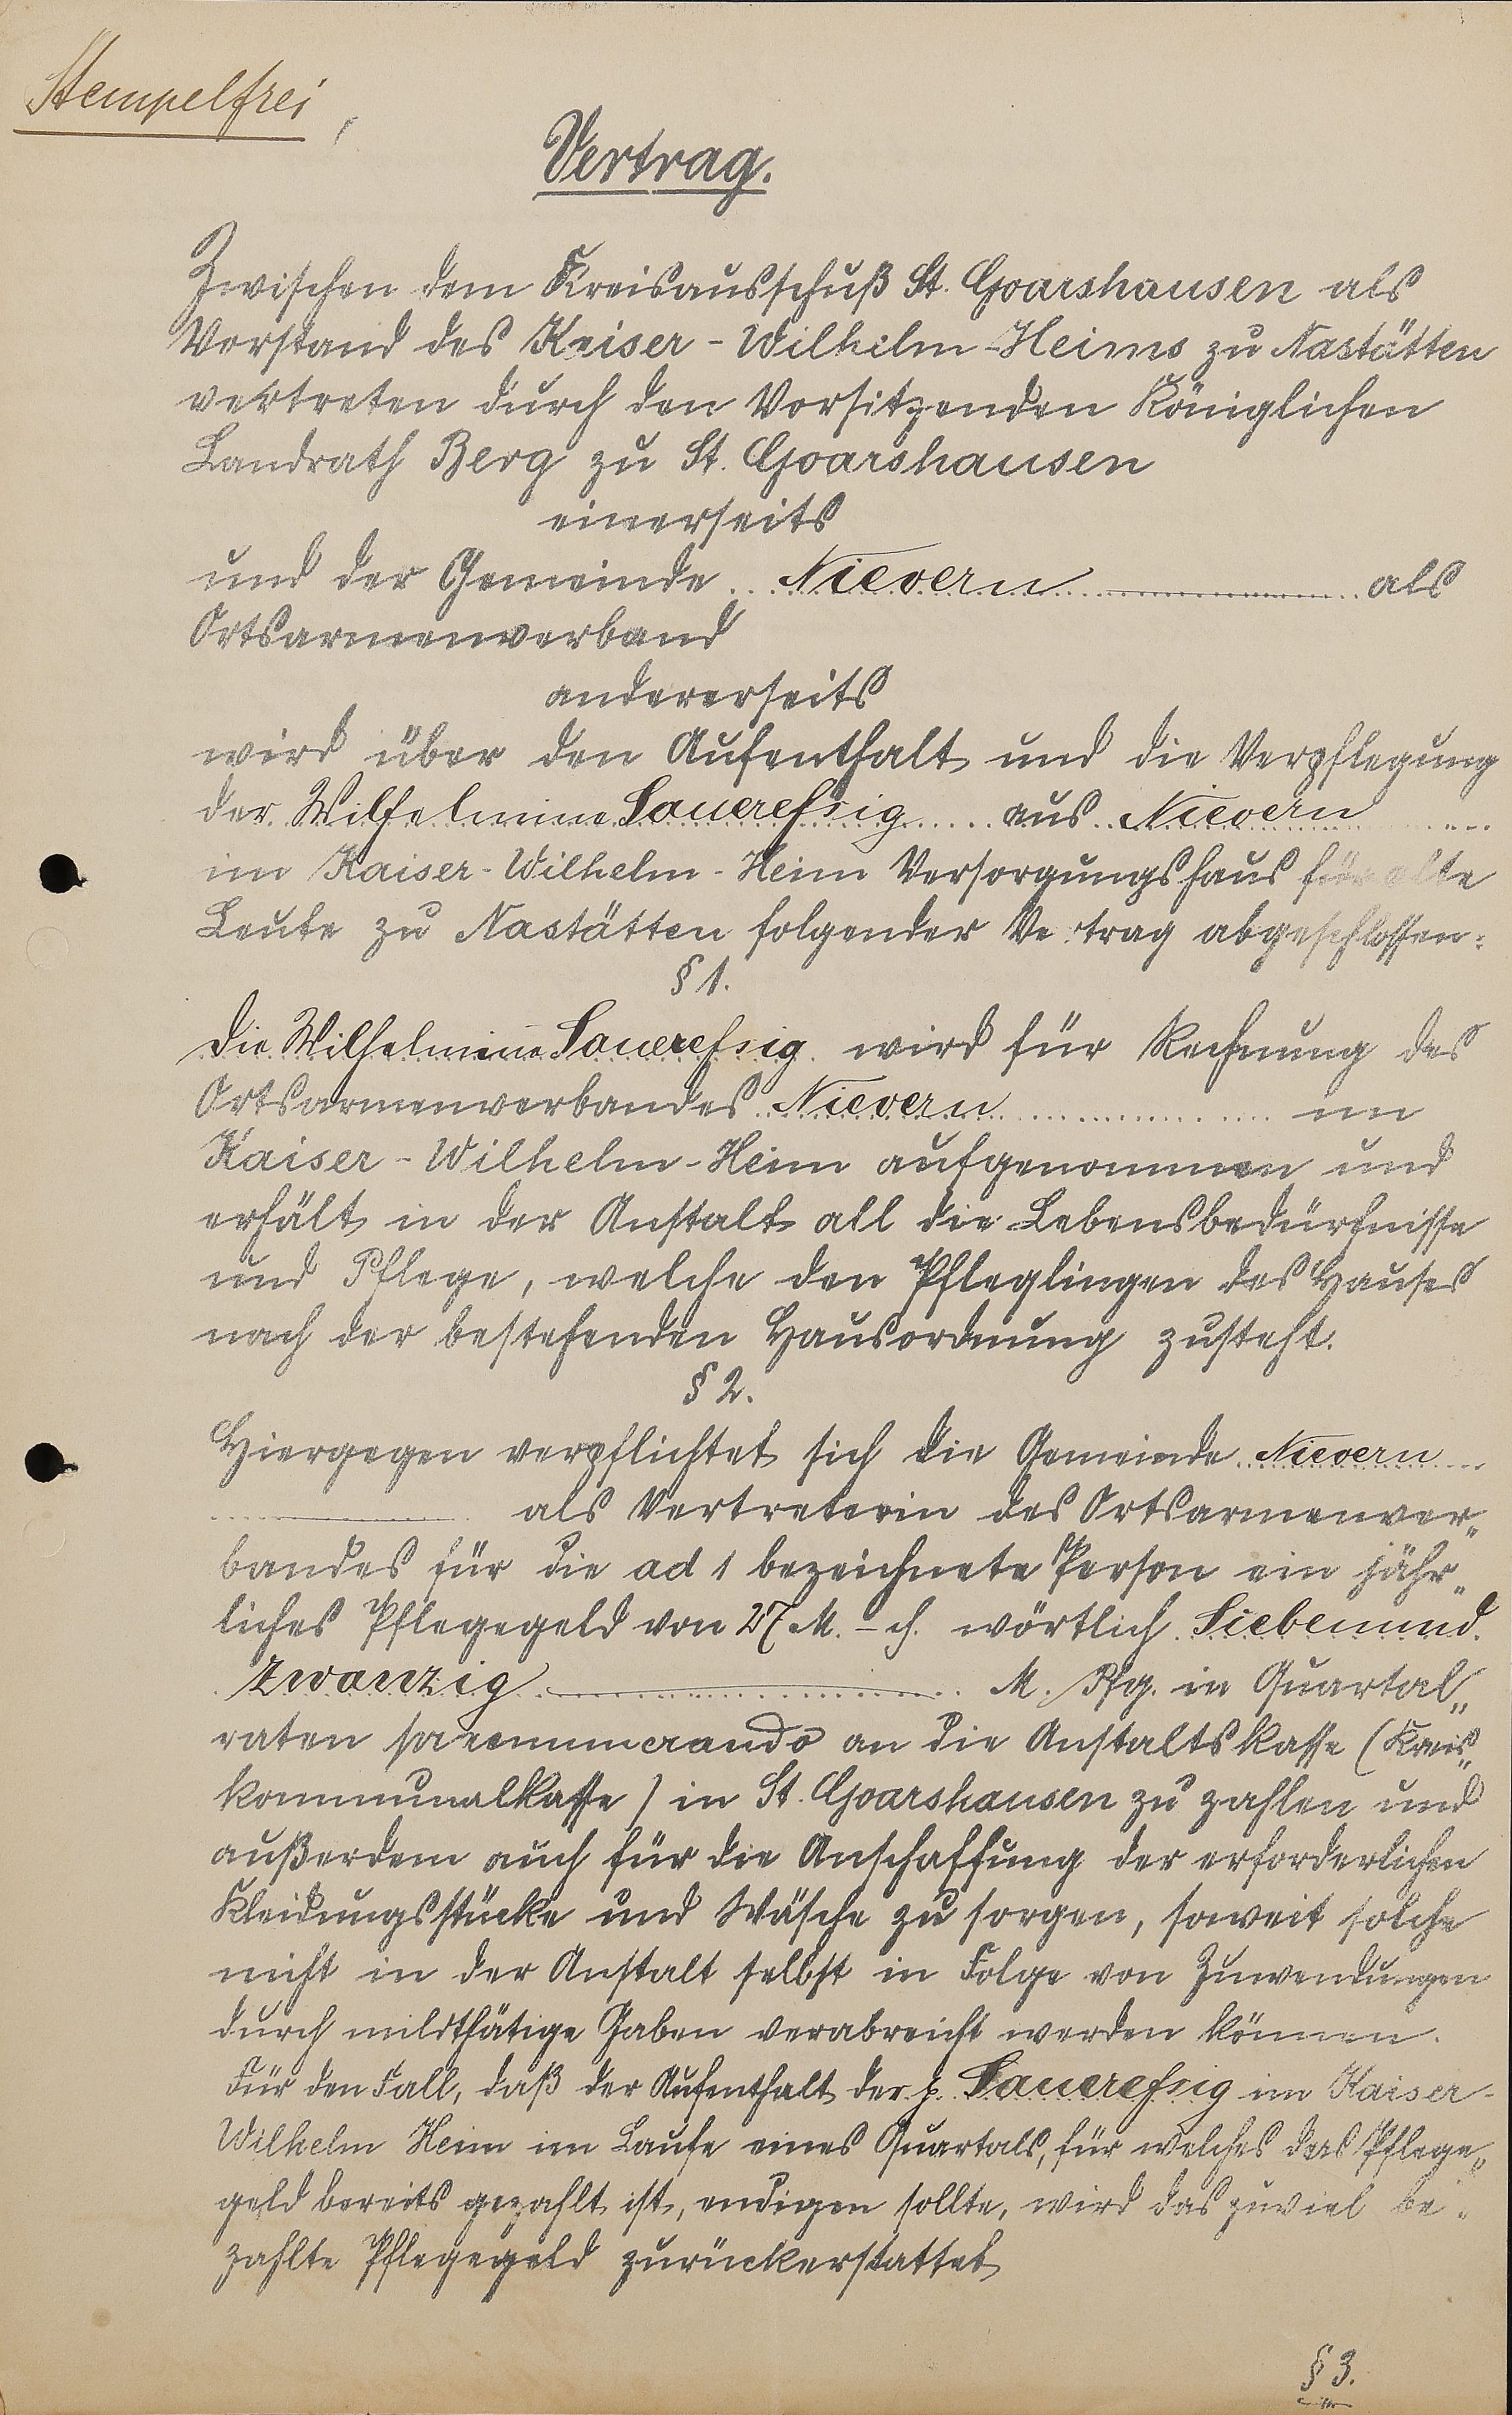 Stempelfrei,
Vertrag.
Zwischen dem Kreisausschuß St. Goarshausen als
Vorstand des Kaiser-Wilhelm-Heims zu Nastätten
vertreten durch den Vorsitzenden Königlichen
Landrath Berg zu St. Goarshausen
einerseits
und der Gemeinde Nievern als
Ortsarmenverband
andererseits
wird über den Aufenthalt und die Verpflegung
der Wilhelmine Saueressig aus Nievern
im Kaiser-Wilhelm-Heim Versorgungshaus für alte
Leute zu Nastätten folgender Vertrag abgeschlossen:
§ 1.
Die Wilhelmine Saueressig wird für Rechnung des
Ortsarmenverbandes Nievern im
Kaiser-Wilhelm-Heim aufgenommen und
erhält in der Anstalt all die Lebensbedürfnisse
und Pflege, welche den Pfleglingen des Hauses
nach der bestehenden Hausordnung zusteht.
§ 2.
Hiergegen verpflichtet sich die Gemeinde Nievern
als Vertreterin des Ortsarmenver-
bandes für die ad 1 bezeichnete Person ein jähr-
liches Pflegegeld von 27 M. - ₰. wörtlich Siebenund
zwanzig M. Pfg. in Quartal-
raten praenumerando an die Anstaltskasse (Kreis-
kommunalkasse) in St. Goarshausen zu zahlen und
außerdem auch für die Anschaffung der erforderlichen
Kleidungsstücke und Wäsche zu sorgen, soweit solche
nicht in der Anstalt selbst in Folge von Zuwendungen
durch mildthätige Gaben verabreicht werden können.
Für den Fall, daß der Aufenthalt der p. Saueressig im Kaiser-
Wilhelm Heim im Laufe eines Quartals, für welches das Pflege-
geld bereits gezahlt ist, endigen sollte, wird das zuviel be-
zahlte Pflegegeld zurückerstattet
§ 3.